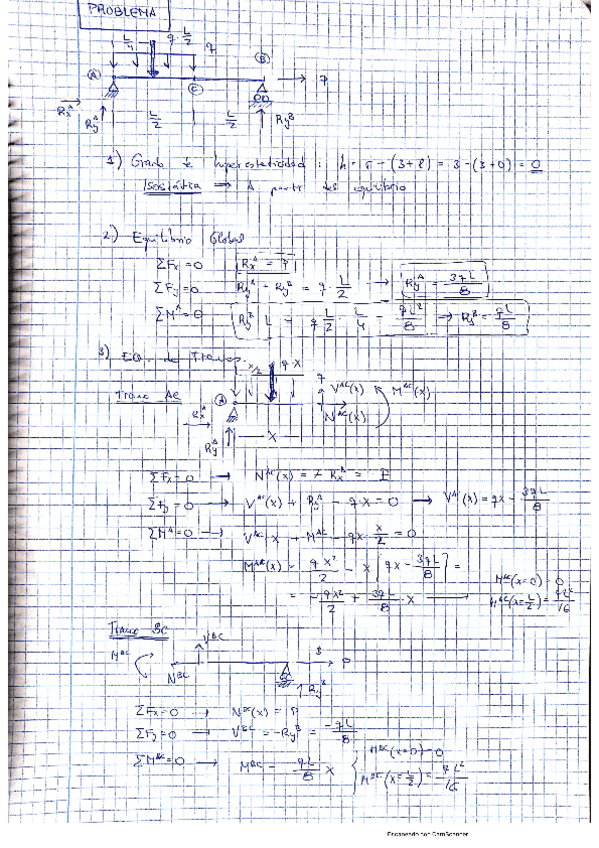 PROBLEMA
L/4 q·L/2
q
A C B P
RxA RyA L/2 L/2 RyB
1) Grado de hiperestaticidad: h = r - (3+l) = 3 - (3+0) = 0
Isostática ⇒ A partir del equilibrio
2) Equilibrio Global
ΣFx=0 RxA = P
ΣFy=0 RyA + RyB = q · L/2 → RyA = 3qL/8
ΣMA=0 RyB · L = q L/2 · L/4 = qL²/8 → RyB = qL/8
3) Eq. de Tramos.
x/2 q·x
Tramo AC A q VAC(x) MAC(x)
RxA NAC(x)
RyA x
ΣFx=0 → NAC(x) = RxA = P
ΣFy=0 → VAC(x) + RyA - qx = 0 → VAC(x) = qx - 3qL/8
ΣMA=0 → VAC·x + MAC - qx · x/2 = 0
MAC(x) = qx²/2 - x [qx - 3qL/8] =
= -qx²/2 + 3qL/8 x → MAC(x=0) = 0
MAC(x=L/2) = qL²/16
Tramo BC
VBC
MBC NBC P
RyB
ΣFx=0 → NBC(x) = P
ΣFy=0 → VBC = -RyB = -qL/8
ΣMBC=0 → MBC = qL/8 x
MBC(x=0) = 0
MBC(x=L/2) = qL²/16
Escaneado con CamScanner